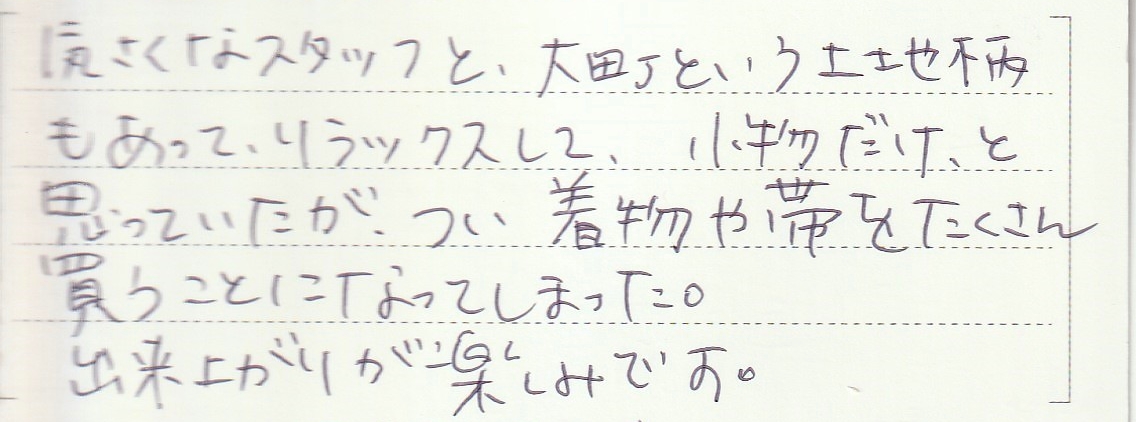 気さくなスタッフと、大田丁という土地柄
もあって、リラックスして、小物だけ、と
思っていたが、つい着物や帯をたくさん
買うことになってしまった。
出来上がりが楽しみです。